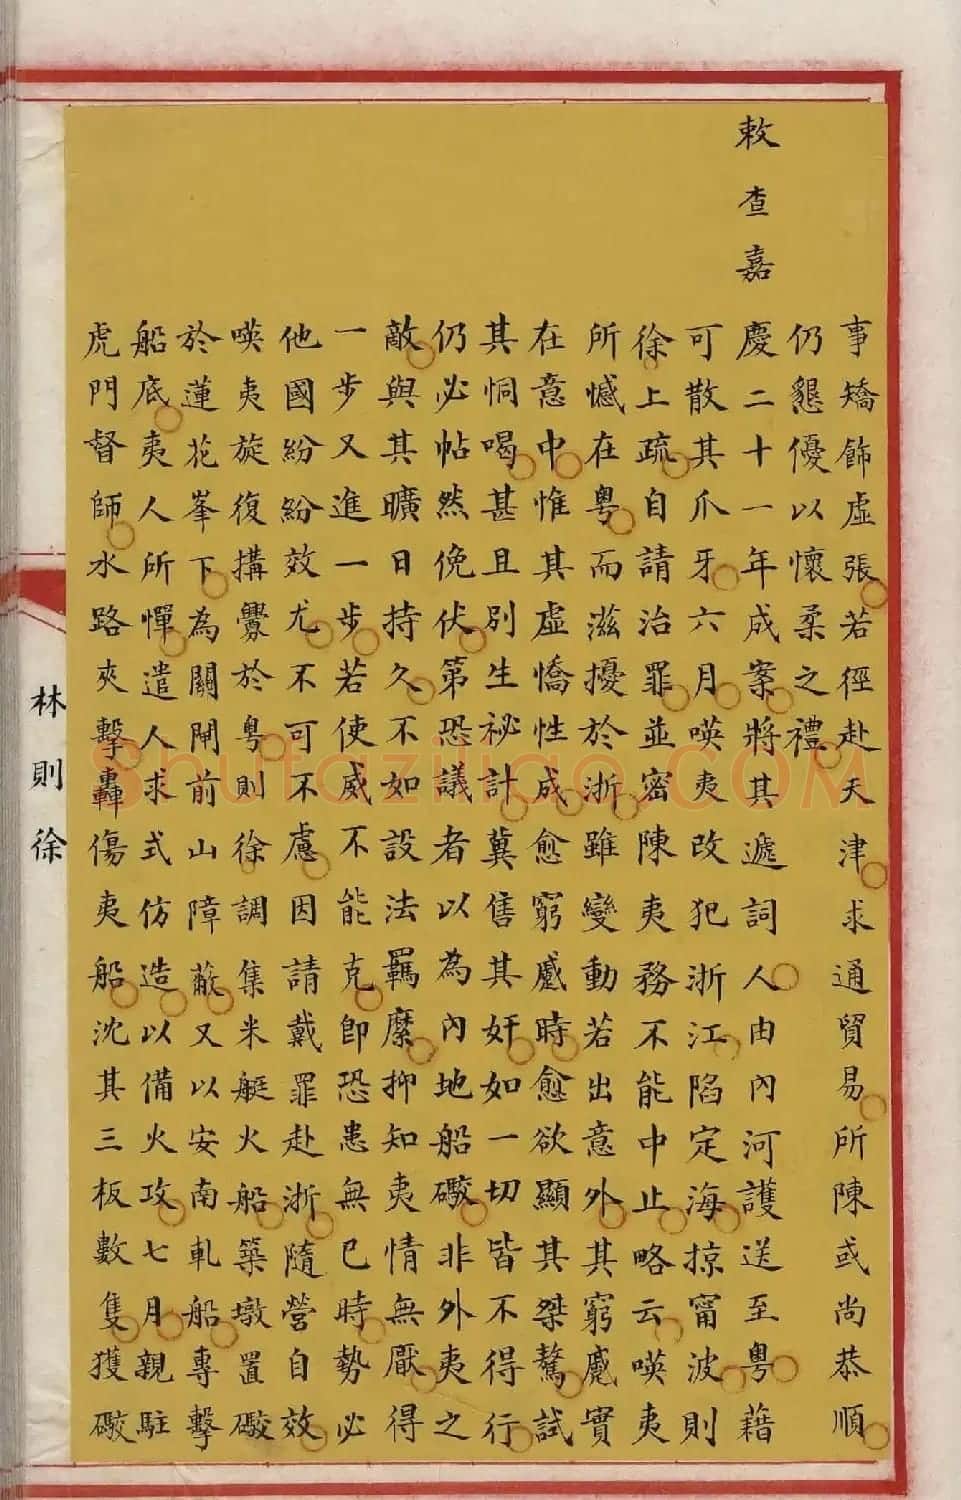 事矯飾虛張若徑赴天津求通貿易所陳或尚恭順
仍懇優以懷柔之禮
敕查嘉慶二十一年成案將其遞詞人由內河護送至粵藉
可散其爪牙六月㗸夷改犯浙江陷定海掠甯波則
徐上疏自請治罪並密陳夷務不能中止略云㗸夷
所憾在粵而滋擾於浙雖變動若出意外其窮蹙實
在意中惟其虛憍性成愈窮蹙時愈欲顯其桀驁試
其恫喝甚且別生祕計冀售其奸如一切皆不得行
仍必帖然俛伏第恐議者以為內地船礮非外夷之
敵與其曠日持久不如設法羈縻抑知夷情無厭得
一步又進一步若使威不能克卽恐患無已時勢必
他國紛紛效尤不可不慮因請戴罪赴浙隨營自效
㗸夷旋復搆釁於粵則徐調集米艇火船築墩置礮
於蓮花峯下為關閘前山障蔽又以安南軋船專擊
船底夷人所憚遣人求式仿造以備火攻七月親駐
虎門督師水路夾擊轟傷夷船沈其三板數隻獲礮
林則徐
Shufaziliao.COM